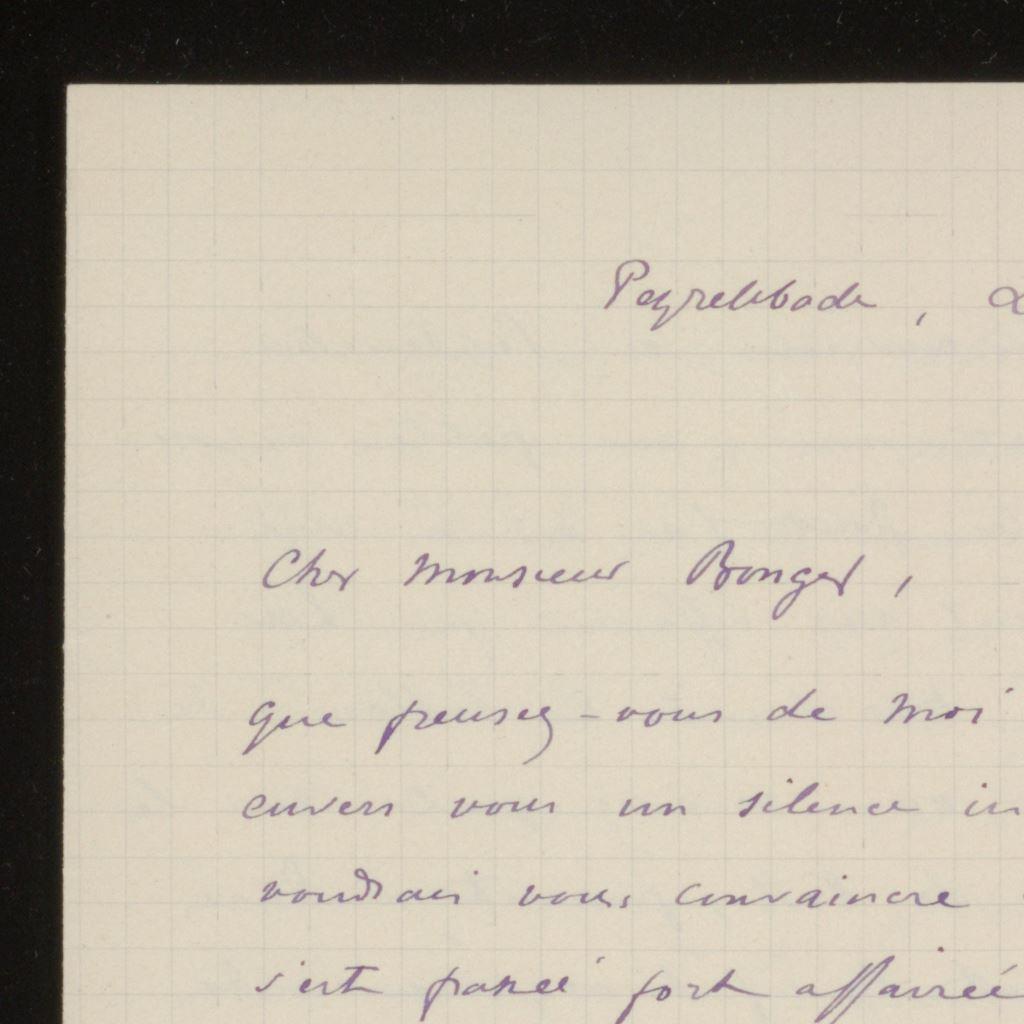 Peyrelebade,
Cher Monsieur Bonger,
que pensez-vous de moi
envers vous un silence in
voudrais vous convaincre
s'est passé fort affairée